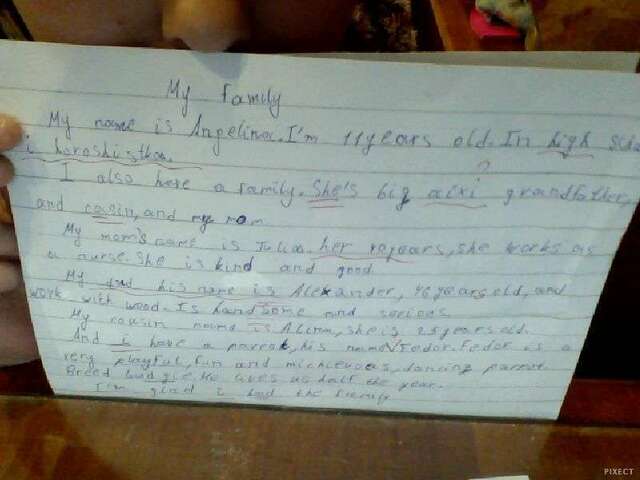 My family
My name is Angelina. I'm 11 years old. In high scho
i horoshistka.
I also have a family. She's big grandfather,
and cosin, and my mom
My mom's name is her years, she works as
a nurse. She is kind and good.
My his name is Alexander, 46 years old, and
work with wood. Is handsome and serious.
My cousin name is Alina, she is 25 years old.
And i have a parrot, his name Fedor. Fedor is a
very playful, fun and michievous, dancing parrot.
Breed budgie. He lives us half the year.
I'm glad i had the family
PIXECT